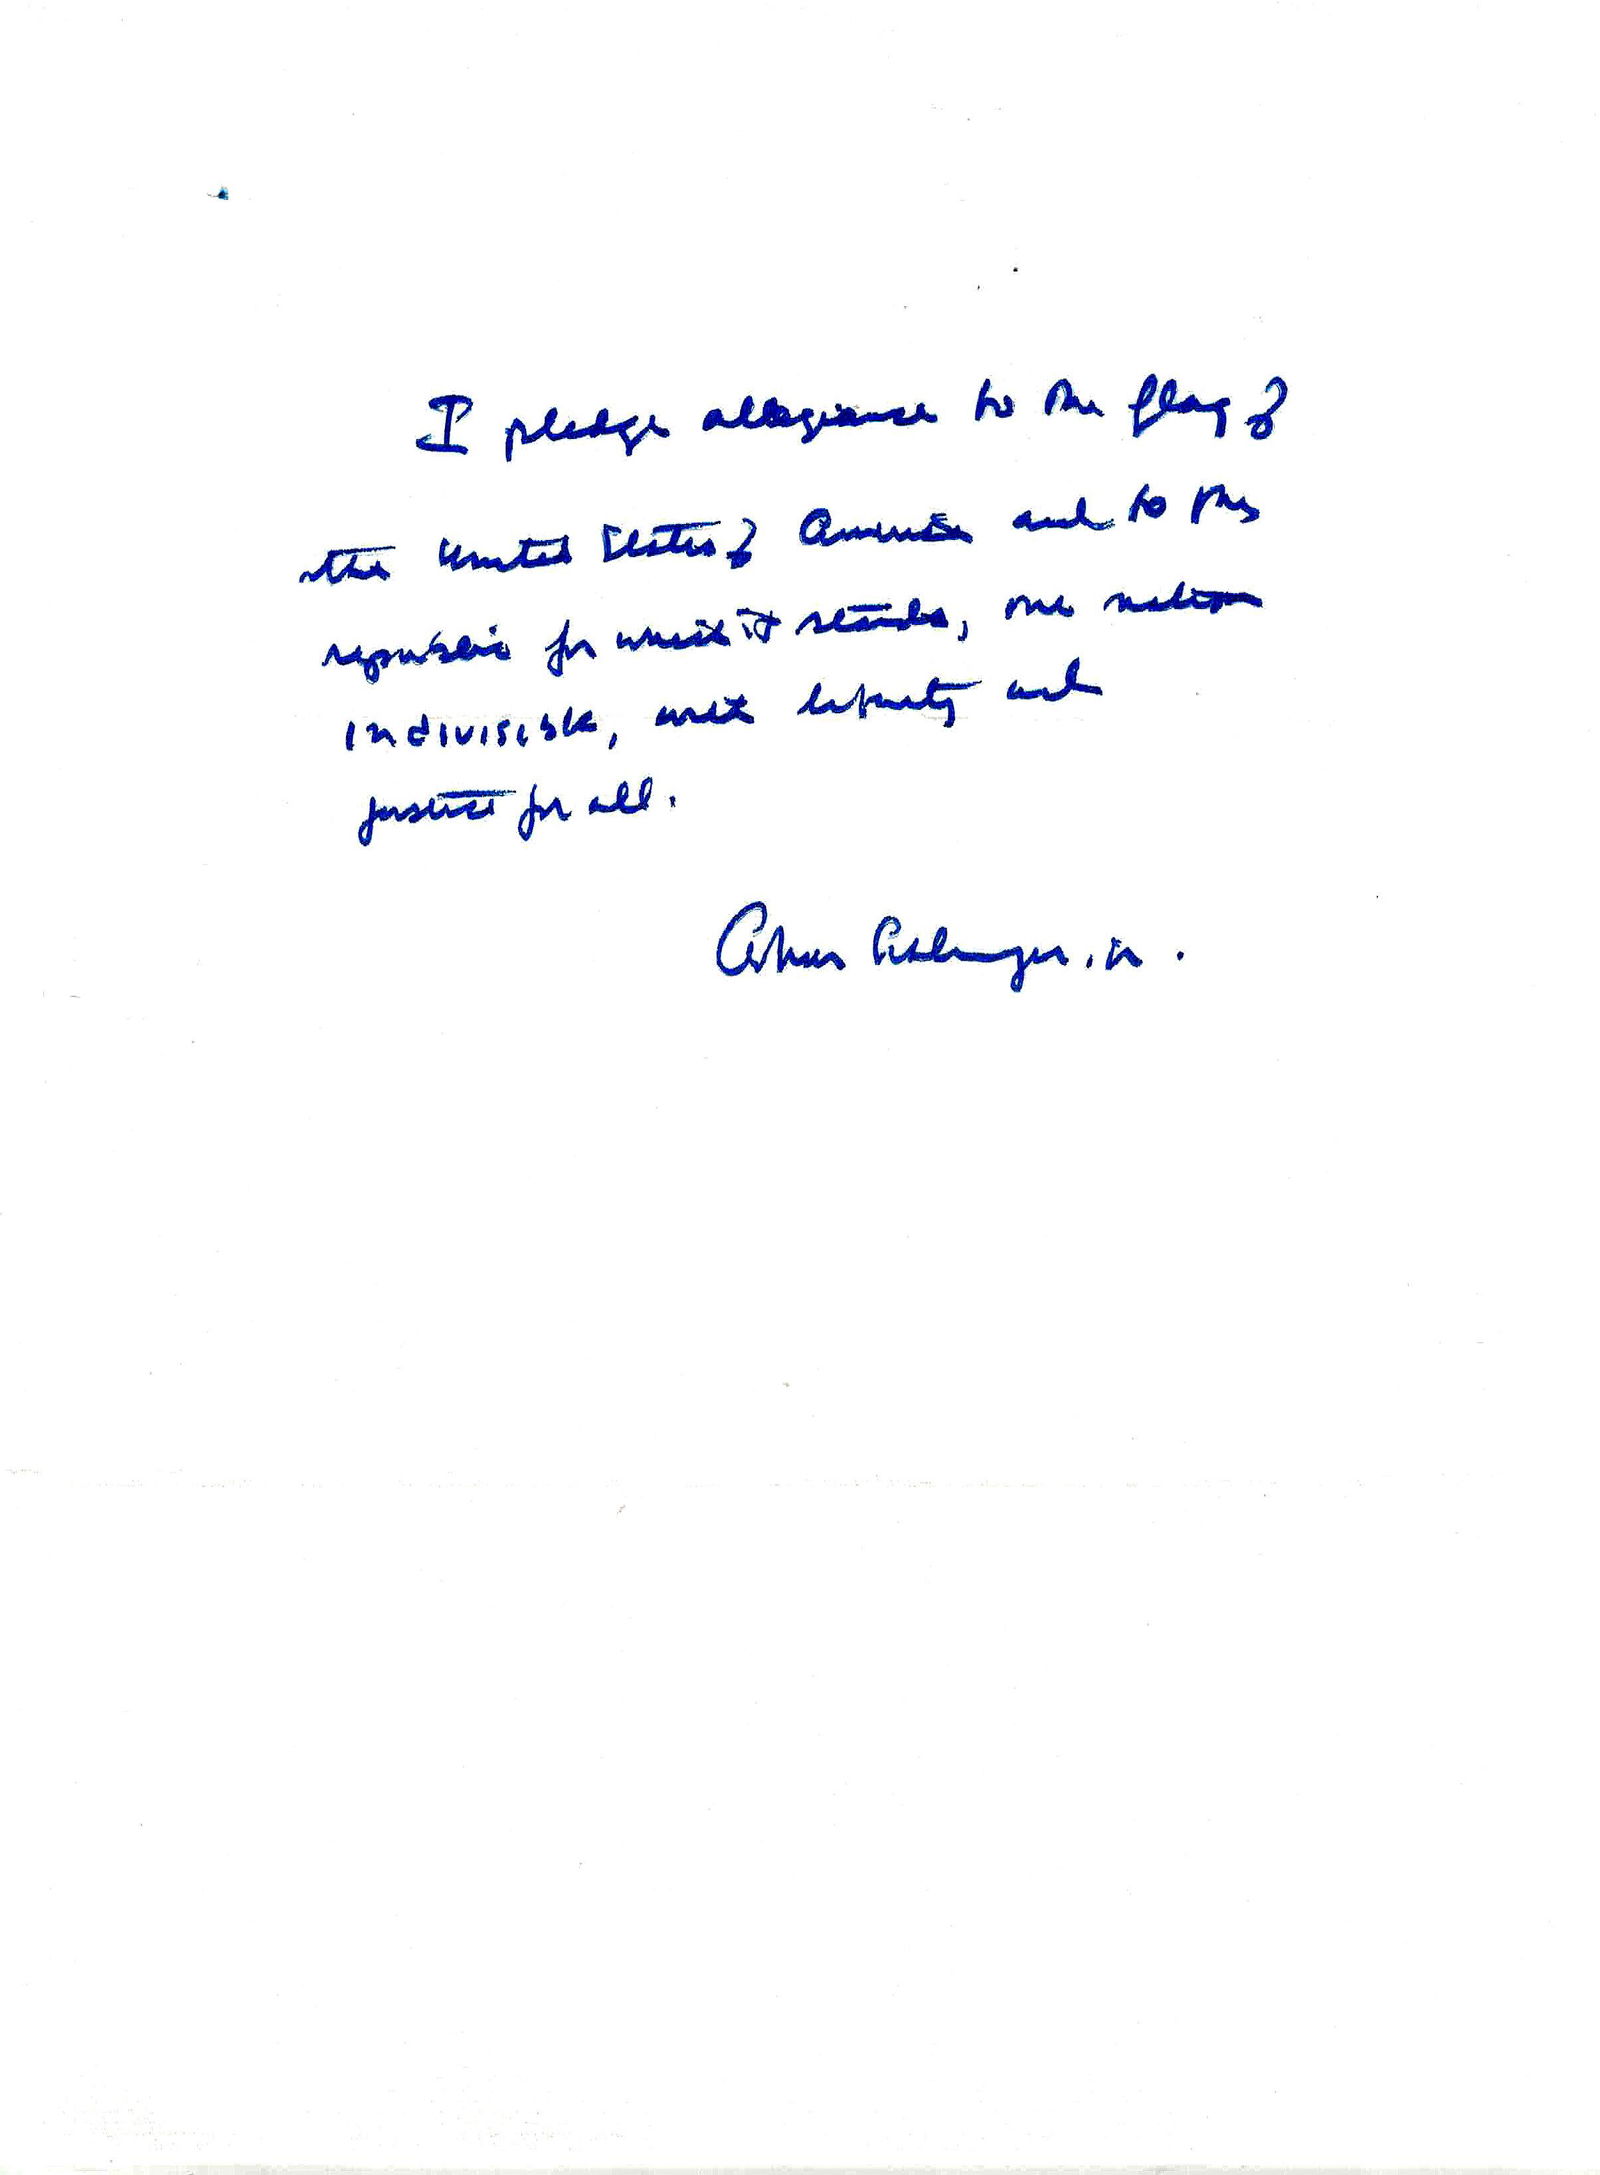 I pledge allegiance to the flag of
the United States of America and to the
republic for which it stands, one nation
indivisible, with liberty and
justice for all.
Arthur Schlesinger, jr.